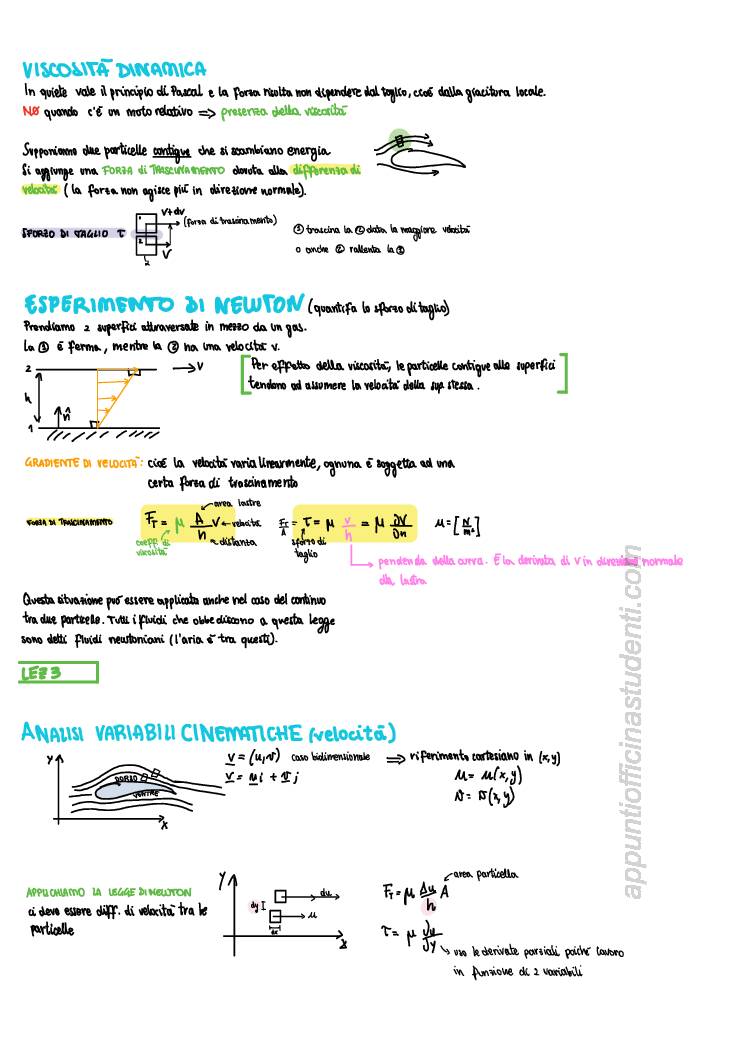 VISCOSITÀ DINAMICA
In quiete vale il principio di Pascal e la forza risulta non dipendere dal taglio, cioè dalla giacitura locale.
NO quando c'è un moto relativo ⇒ presenza della viscosità
Supponiamo due particelle contigue che si scambiano energia.
Si aggiunge una FORZA DI TRASCINAMENTO dovuta alla differenza di
velocità (la forza non agisce più in direzione normale).
V+dV
(forza di trascinamento)
SFORZO DI TAGLIO τ
1
2
V
① trascina la ② data la maggiore velocità
o anche ② rallenta la ①
ESPERIMENTO DI NEWTON (quantifa lo sforzo di taglio)
Prendiamo 2 superfici attraversate in mezzo da un gas.
La ① è ferma, mentre la ② ha una velocità v.
2
V
h
n̂
1
[Per effetto della viscosità, le particelle contigue alle superfici
tendono ad assumere la velocità della sup stessa.]
GRADIENTE DI VELOCITÀ: cioè la velocità varia linearmente, ognuna è soggetta ad una
certa forza di trascinamento
FORZA DI TRASCINAMENTO
F_T = μ A/h V
area lastre
velocità
distanza
coeff di viscosità
F_T/A = τ = μ v/h = μ ∂V/∂n
sforzo di taglio
μ = [N/m²]
pendenza della curva. È la derivata di V in direzione normale
alla lastra
Questa situazione può essere applicata anche nel caso del continuo
tra due particelle. Tutti i fluidi che obbediscono a questa legge
sono detti fluidi newtoniani (l'aria è tra questi).
LEZ 3
ANALISI VARIABILI CINEMATICHE (velocità)
y
DORSO
VENTRE
x
v = (u, v) caso bidimensionale ⇒ riferimento cartesiano in (x, y)
v = u i + v j
u = u(x, y)
v = v(x, y)
APPLICHIAMO LA LEGGE DI NEWTON
ci deve essere diff. di velocità tra le
particelle
y
du
dy
u
dx
x
F_T = μ Δu/h A
area particella
τ = μ ∂u/∂y
uso le derivate parziali poiché lavoro
in funzione di 2 variabili
appuntiofficinastudenti.com